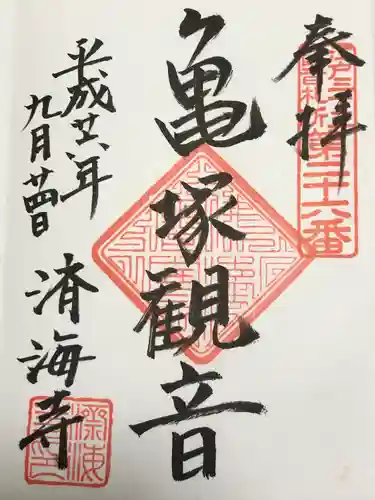 奉拝
第二十六番
亀塚観音
平成廿六年
九月廿四日
済海寺